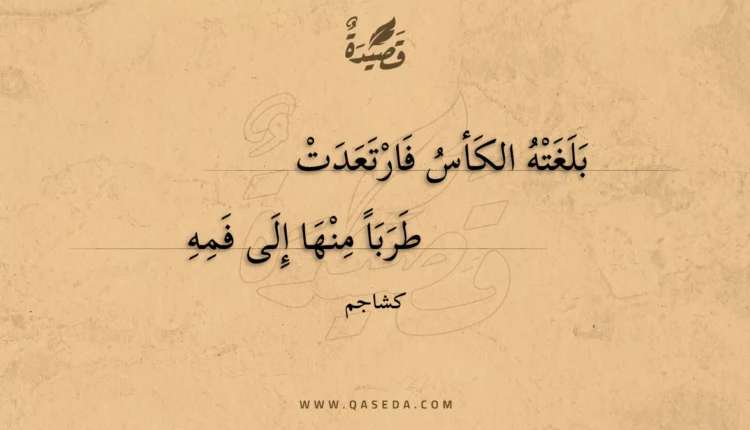 قَصِيْدَةٌ
بَلَغَتْهُ الكَأسُ فَارْتَعَدَتْ
طَرَبَاً مِنْهَا إِلَى فَمِهِ
كشاجم
WWW.QASEDA.COM